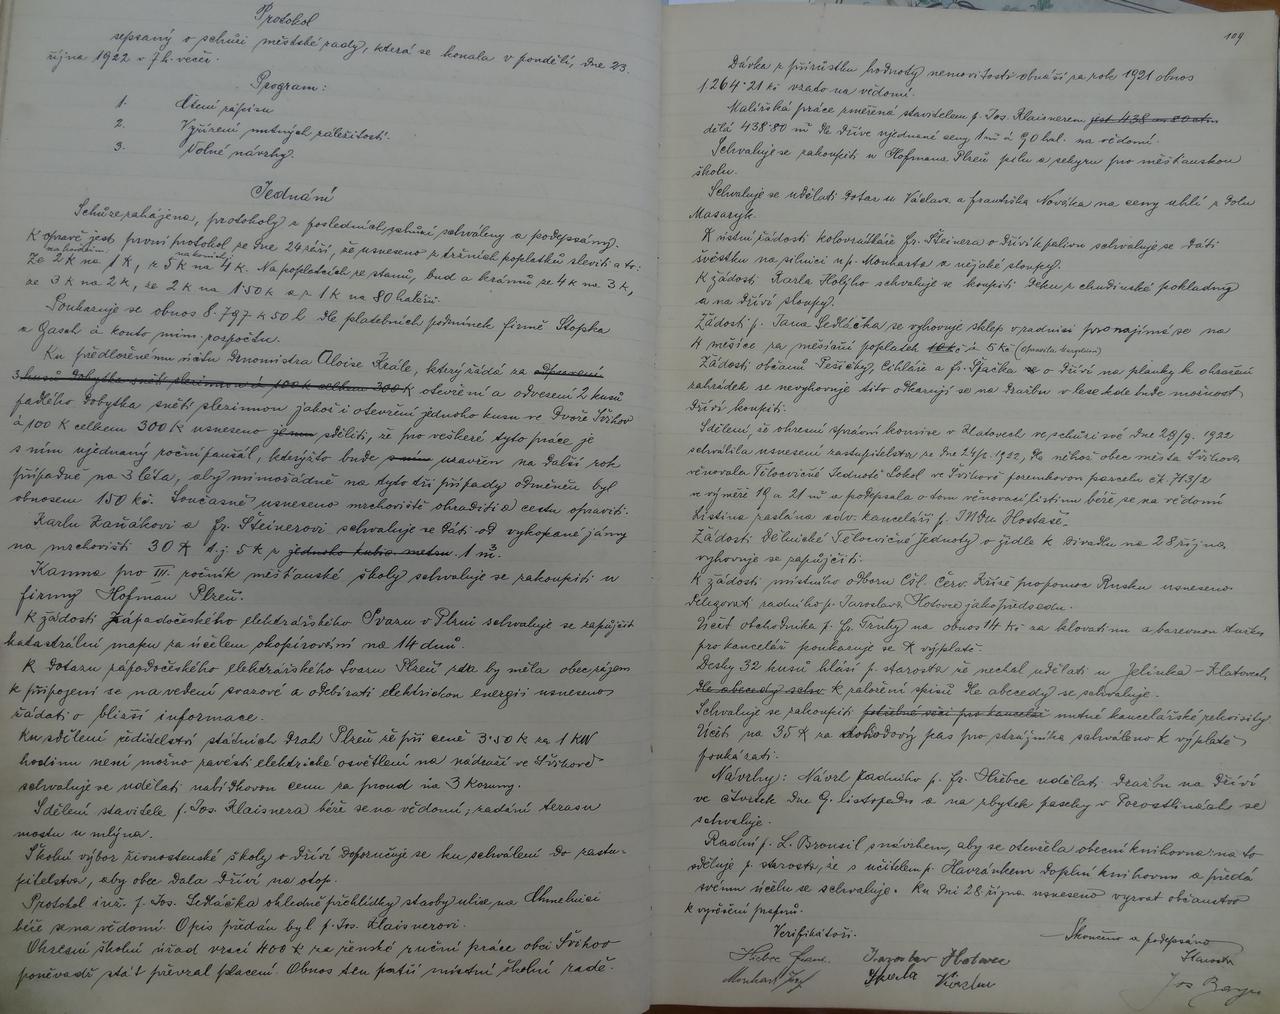 Protokol
sepsaný o schůzi městské rady, která se konala v pondělí, dne 23.
října 1922 v 7 h. večer.
Program:
1. Čtení zápisu
2. Vyřízení nutných záležitostí.
3. Volné návrhy.
Jednání
Schůze zahájena, protokoly z posledních schůzí schváleny a podepsány.
K opravě jest první protokol ze dne 29 září, že usneseno z tržních poplatků sleviti a to:
na hovězím na koních
ze 2 K na 1 K, z 5 K na 4 K. Na poplatcích ze stanů, bud a krámů ze 4 K na 3 K,
ze 3 K na 2 K, ze 2 K na 1·50 K a z 1 K na 80 haléřů.
Poukazuje se obnos 8.797 K 50 h dle platebních podmínek firmě Stopka
a Gasch á konto mim. rozpočtu.
Ku předloženému účtu drnomistra Aloise Krále, který žádá za odpravení
3 kusů dobytka snětí slezinnou á 100 K celkem 300 K otevření a odvezení 2 kusů
padlého dobytka snětí slezinnou jakož i otevření jednoho kusu ve Dvoře Švihov
á 100 K celkem 300 K usneseno jemu sděliti, že pro veškeré tyto práce je
s ním ujednaný roční paušál, kterýžto bude s ním uzavřen na další rok
případně na 3 léta, aby mimořádně na tyto tři případy odměněn byl
obnosem 150 kč. Současně usneseno mrchoviště ohraditi a cestu opraviti.
Karlu Kasíákovi a Fr. Šteinerovi schvaluje se dáti od vykopané jámy
na mrchovišti 30 K t.j. 5 K z jednoho kubic. metru 1 m³.
Kamna pro III. ročník měšťanské školy schvaluje se zakoupiti u
firmy Hofman Plzeň.
K žádosti Západočeského elektrářského Svazu v Plzni schvaluje se zapůjčit
katastrální mapu za účelem okopírování na 14 dnů.
K dotazu západočeského elektrárského Svazu Plzeň, zda by měla obec zájem
k připojení se na vedení svazové a odebírati elektrickou energii usneseno
žádati o bližší informace.
Ku sdělení ředitelství státních drah Plzeň že při ceně 3·50 K za 1 KW
hodinu není možno zavésti elektrické osvětlení na nádraží ve Švihově
schvaluje se udělati nabídkovou cenu za proud na 3 Koruny.
Sdělení stavitele p. Jos. Klaisnera béře se na vědomí; zadání terasu
mostu u mlýna.
Školní výbor živnostenské školy o dříví doporučuje se ku schválení do zastu-
pitelstva, aby obec dala dříví na otop.
Protokol inž. p. Jos. Sedláčka ohledně přehlídky stavby ulice na Chmelnici
béře se na vědomí. Opis předán byl p. Jos. Klaisnerovi.
Okresní školní úřad vrací 400 K za ženské ruční práce obci Švihov
poněvadž stát převzal placení. Obnos ten patří místní školní radě.
109
Dávka z přírůstku hodnoty nemovitosti obnáší za rok 1921 obnos
1.264·21 kč vzato na vědomí.
Malířská práce změřená stavitelem p. Jos. Klaisnerem jest 438 m 80 ctm.
dělá 438·80 m² dle dříve ujednané ceny 1 m² á 90 hal. na vědomí.
Schvaluje se zakoupiti u Hofmana Plzeň pilu a sekyru pro měšťanskou
školu.
Schvaluje se udělati dotaz u Václava a Františka Nováka na ceny uhlí z dolu
Masaryk.
K ústní žádosti kolovrátkáře Fr. Šteinera o dřívík palivu schvaluje se dáti
švestku na silnici u p. Monharta a nějaké sloupky.
K žádosti Karla Holého schvaluje se koupiti deku z chudinské pokladny
a na dříví sloupy.
Žádosti p. Jana Sedláčka se vyhovuje sklep v radnici pronajímá se na
4 měsíce za měsíční poplatek 10 kč á 5 kč
Žádosti občanů Pešičky, Cihláře a Fr. Špačka o dříví na plaňky k ohražení
zahrádek se nevyhovuje tito odkazují se na dražbu v lese kde bude možnost
dříví koupiti.
Sdělení, že okresní správní komise v Klatovech ve schůzi své dne 29/9. 1922
schválila usnesení zastupitelstva ze dne 24/2. 1922, dle něhož obec města Švihova
věnovala Tělocvičné Jednotě Sokol ve Švihově pozemkovou parcelu čk. 713/2
u výměře 19 a 21 m² a podepsala o tom věnovací listinu béře se na vědomí
Listina zaslána adv. kanceláři p. JUDra Hostaše.
Žádosti Dělnické Tělocvičné Jednoty o židle k divadlu na 28 října
vyhovuje se zapůjčiti.
K žádosti místního odboru Čsl. Červ. Kříže pro pomoc Rusku usneseno
delegovati radního p. Jaroslava Hotovce jako předsedu.
Účet obchodníka p. Fr. Truhly na obnos 14 Kč za klovatinu a barevnou tužku
pro kancelář poukazuje se k výplatě.
Desky 32 kusů hlásí p. starosta že nechal udělati u Jelínka - Klatovech,
dle abecedy schv. k založení spisů dle abecedy se schvaluje.
Schvaluje se zakoupiti potřebné věci pro kancelář nutné kancelářské rekvisity
Účet na 35 K za služební pas pro strážníka schváleno k výplatě
poukázati.
Návrhy: Návrh radního p. Fr. Hřebce udělati dražbu na dříví
ve čtvrtek dne 9. listopadu a na zbytek paseky v Porostlinách se
schvaluje.
Radní p. L. Brousil s návrhem, aby se otevřela obecní knihovna: na to
sděluje p. starosta, že s učitelem p. Havránkem doplní knihovnu a předá
svému účelu se schvaluje. Ku dni 28 října usneseno vyzvat občanstvo
k vyvěšení praporů.
Verifikátoři. Skončeno a podepsáno
Hřebec Frant. Jaroslav Hotovec Starosta
Monhart Jos.